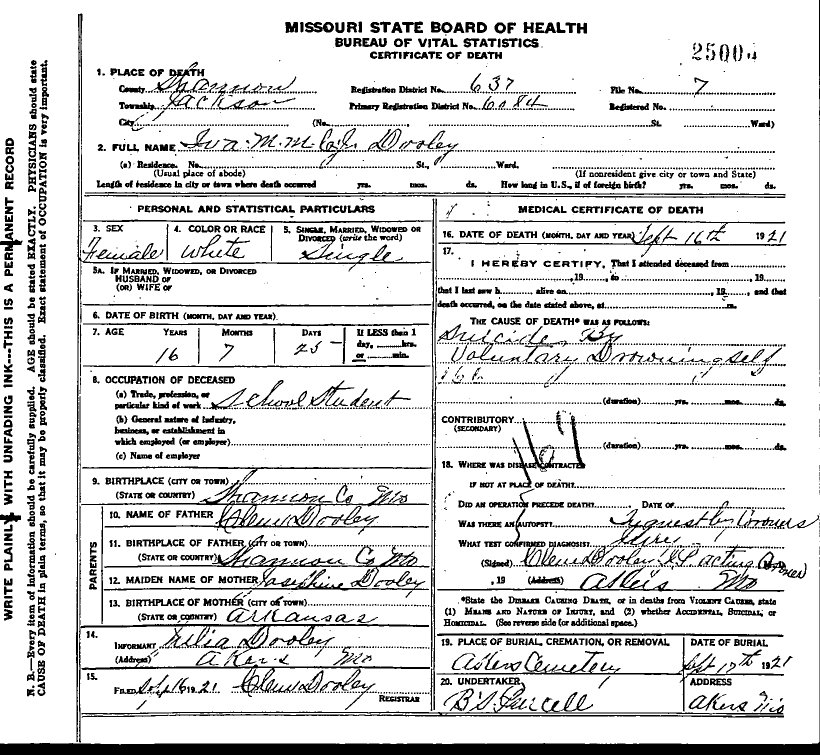 MISSOURI STATE BOARD OF HEALTH
BUREAU OF VITAL STATISTICS
CERTIFICATE OF DEATH
2500
1. PLACE OF DEATH
County Shannon Registration District No. 637 File No. 7
Township Jackson Primary Registration District No. 6084 Registered No.
City (No. St. Ward)
2. FULL NAME Iva M. Dooley
(a) Residence. No. St., Ward.
(Usual place of abode) (If nonresident give city or town and State)
Length of residence in city or town where death occurred yrs. mos. ds. How long in U.S., if of foreign birth? yrs. mos. ds.
PERSONAL AND STATISTICAL PARTICULARS
3. SEX 4. COLOR OR RACE 5. SINGLE, MARRIED, WIDOWED OR
DIVORCED (write the word)
Female White Single
5A. IF MARRIED, WIDOWED, OR DIVORCED
HUSBAND OF
(OR) WIFE OF
6. DATE OF BIRTH (MONTH, DAY AND YEAR)
7. AGE YEARS MONTHS DAYS If LESS than 1
day, hrs.
or min.
16 7 25
8. OCCUPATION OF DECEASED
(a) Trade, profession, or
particular kind of work School Student
(b) General nature of industry,
business, or establishment in
which employed (or employer)
(c) Name of employer
9. BIRTHPLACE (CITY OR TOWN)
(STATE OR COUNTRY) Shannon Co Mo
PARENTS
10. NAME OF FATHER Clem Dooley
11. BIRTHPLACE OF FATHER (CITY OR TOWN)
(STATE OR COUNTRY) Shannon Co Mo
12. MAIDEN NAME OF MOTHER Josephine Dooley
13. BIRTHPLACE OF MOTHER (CITY OR TOWN)
(STATE OR COUNTRY) Arkansas
14.
INFORMANT Dooley
(Address) Akers Mo
15.
FILED Sept 16 1921 Clem Dooley
REGISTRAR
MEDICAL CERTIFICATE OF DEATH
16. DATE OF DEATH (MONTH, DAY AND YEAR) Sept 16th 1921
17.
I HEREBY CERTIFY, That I attended deceased from
, 19 , to , 19
that I last saw h alive on , 19 , and that
death occurred, on the date stated above, at m.
THE CAUSE OF DEATH* WAS AS FOLLOWS:
Suicide, By
Voluntary Drowning self
(duration) yrs. mos. ds.
CONTRIBUTORY
(SECONDARY)
(duration) yrs. mos. ds.
18. WHERE WAS DISEASE CONTRACTED
IF NOT AT PLACE OF DEATH?
DID AN OPERATION PRECEDE DEATH? DATE OF
WAS THERE AN AUTOPSY? Inquest by Coroners
WHAT TEST CONFIRMED DIAGNOSIS? Jury
(Signed) Clem Dooley acting Coroner
, 19 (Address) Akers Mo
*State the DISEASE CAUSING DEATH, or in deaths from VIOLENT CAUSES, state
(1) MEANS AND NATURE OF INJURY, and (2) whether ACCIDENTAL, SUICIDAL, or
HOMICIDAL. (See reverse side for additional space.)
19. PLACE OF BURIAL, CREMATION, OR REMOVAL DATE OF BURIAL
Akers Cemetery Sept 17th 1921
20. UNDERTAKER ADDRESS
B S Purcell Akers Mo
WRITE PLAINLY, WITH UNFADING INK---THIS IS A PERMANENT RECORD
N. B.—Every item of information should be carefully supplied. AGE should be stated EXACTLY. PHYSICIANS should state
CAUSE OF DEATH in plain terms, so that it may be properly classified. Exact statement of OCCUPATION is very important.